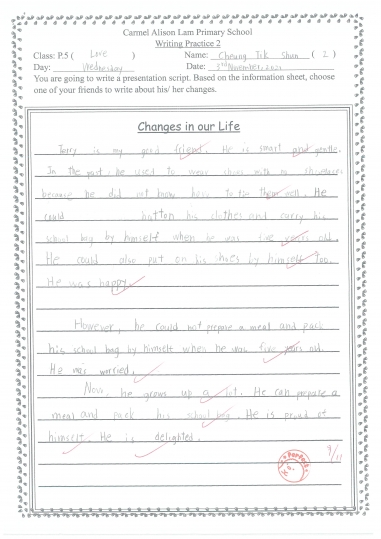 Carmel Alison Lam Primary School
Writing Practice 2
Class: P.5 ( Love ) Name: Cheung Tik Shun ( 2 )
Day: Wednesday Date: 3rd November, 2021
You are going to write a presentation script. Based on the information sheet, choose
one of your friends to write about his/ her changes.
Changes in our Life
Terry is my good friend. He is smart and gentle.
In the past, he used to wear shoes with no shoelaces
because he did not know how to tie them well. He
could button his clothes and carry his
school bag by himself when he was five years old.
He could also put on his shoes by himself too.
He was happy.
However, he could not prepare a meal and pack
his school bag by himself when he was five years old.
He was worried.
Now, he grows up a lot. He can prepare a
meal and pack his school bag. He is proud of
himself. He is delighted.
9/11